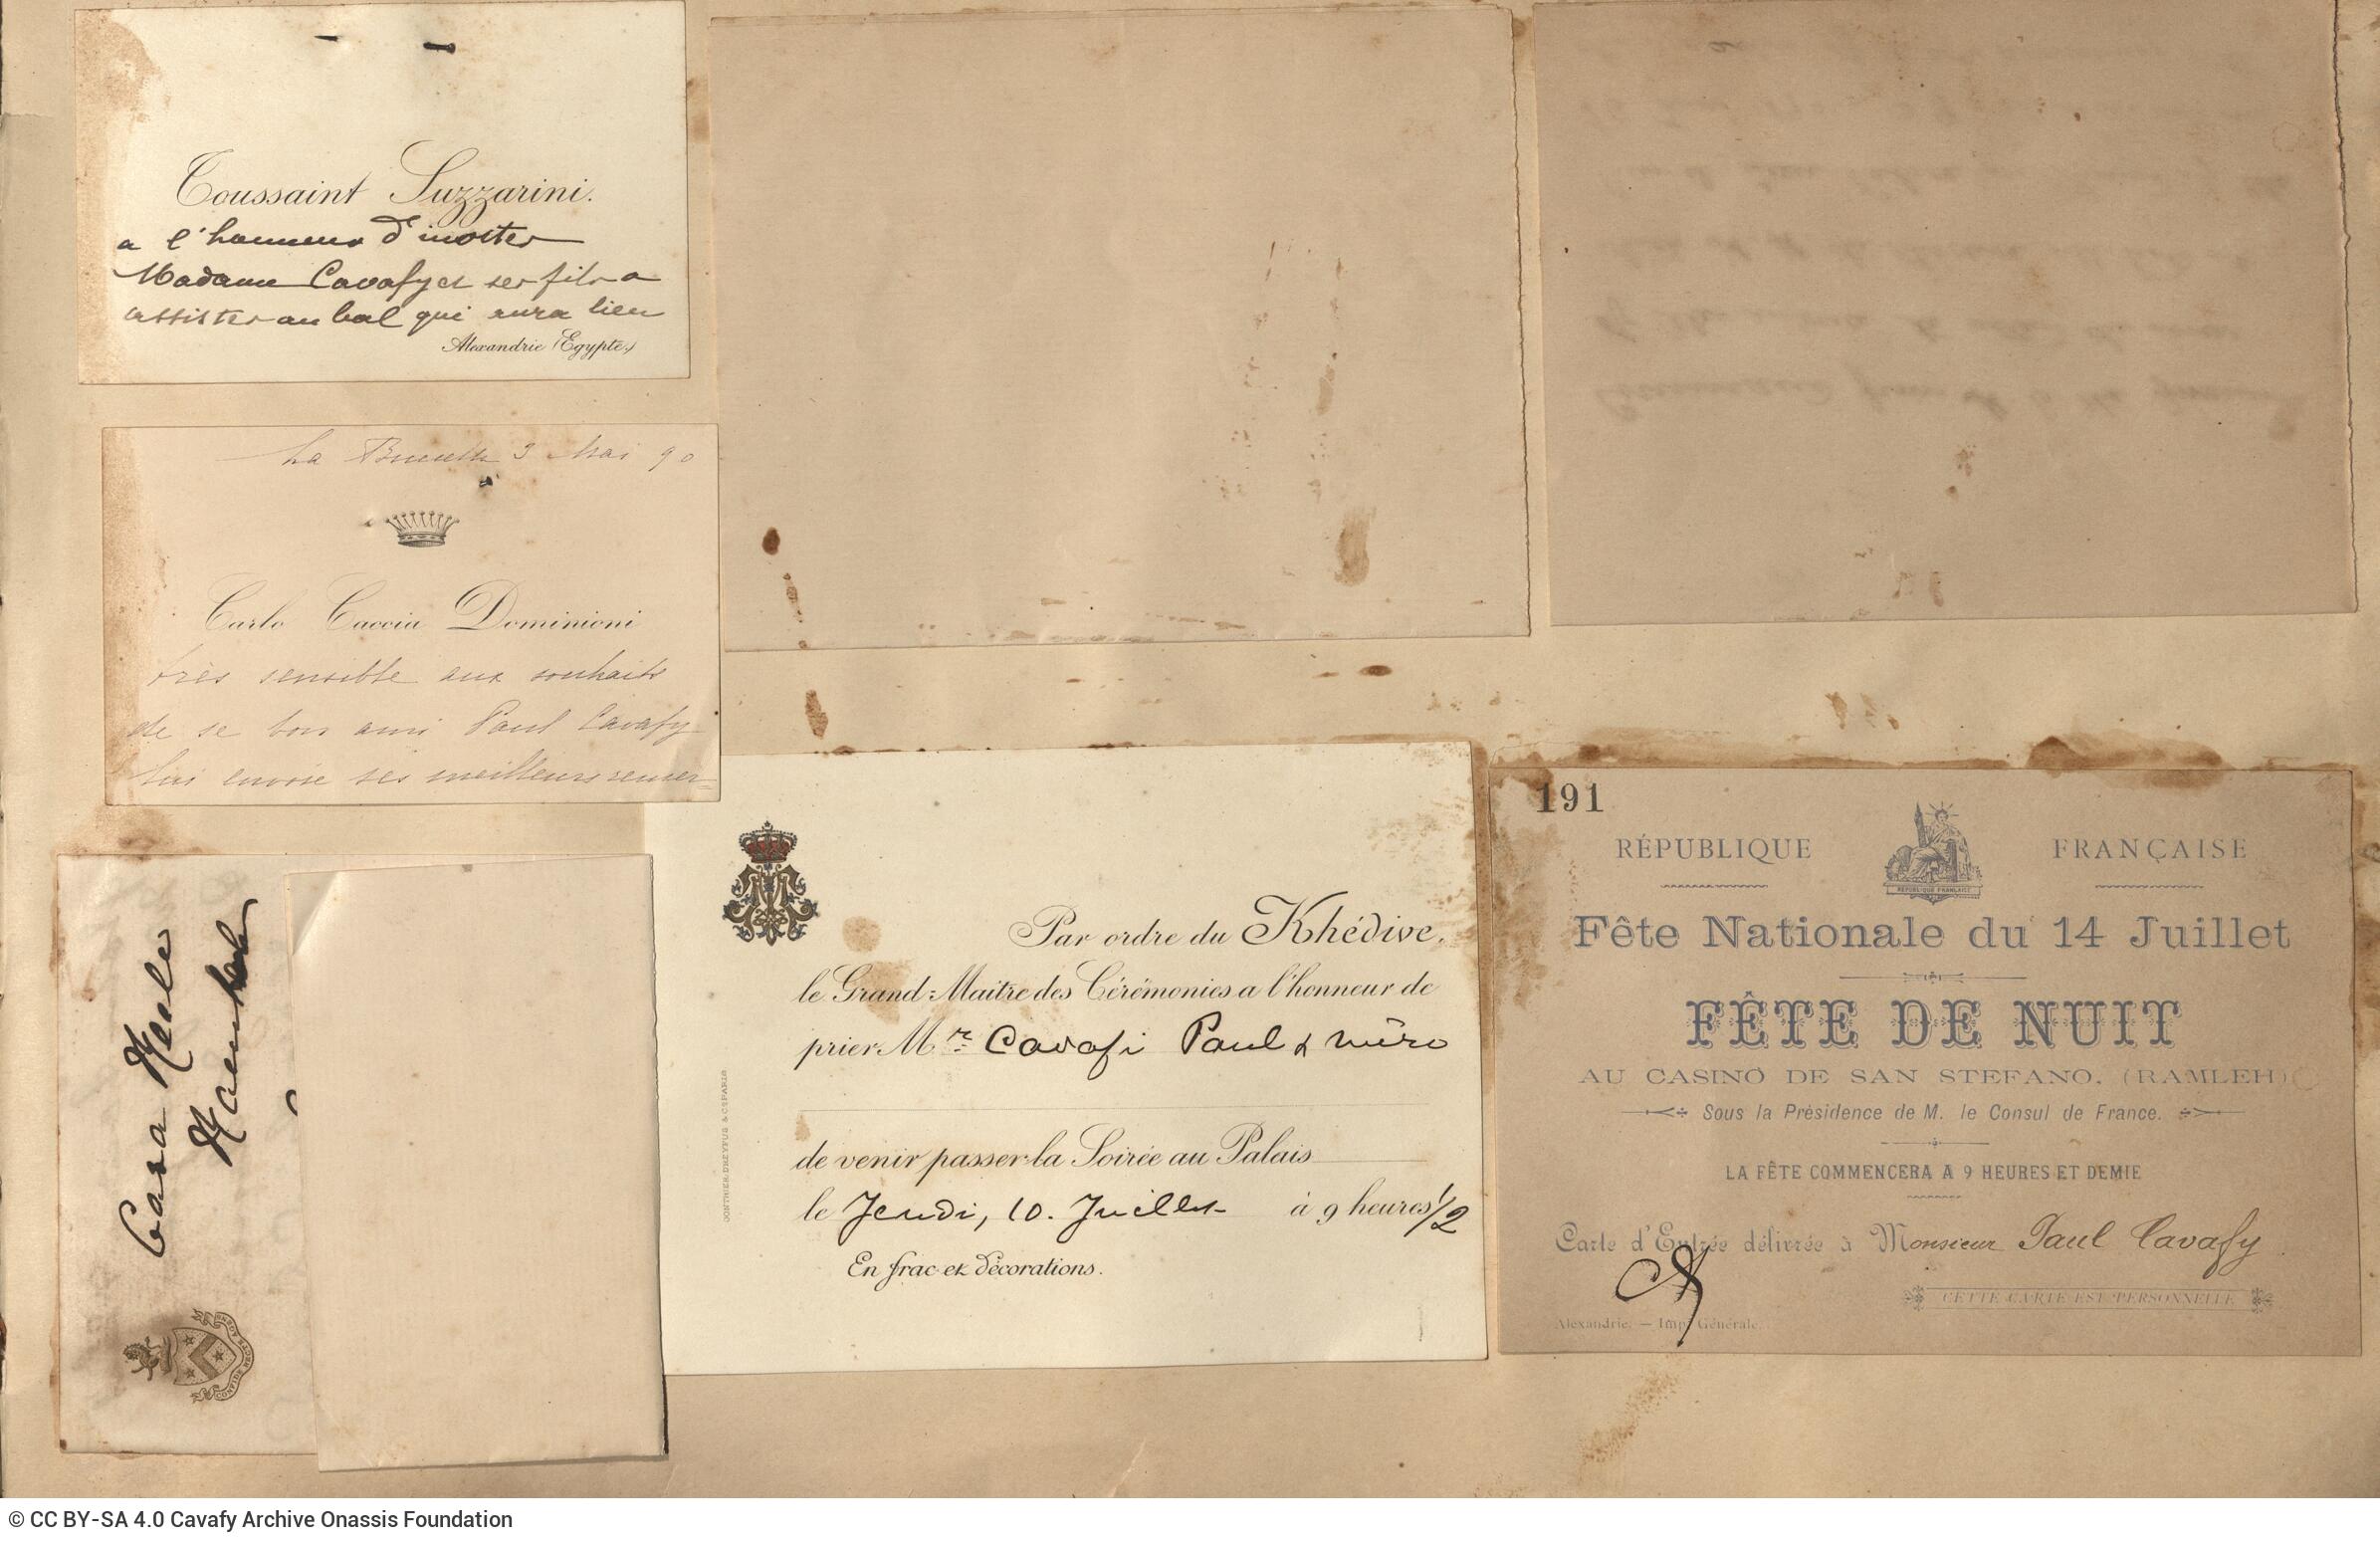 Toussaint Suzzarini.
a l'honneur d'inviter
Madame Cavafy et ses fils a
assister au bal qui aura lieu
Alexandrie (Egypte.)
La 3 Mai 90
Carlo Caccia Dominioni
très sensible aux souhaits
de se bon ami Paul Cavafy
lui envoie ses meilleurs remer-
Casa
Par ordre du Khédive,
le Grand-Maitre des Cérémonies a l'honneur de
prier Mr. Cavafi Paul & mère
de venir passer la Soirée au Palais
le Jeudi, 10. Juillet à 9 heures 1/2
En frac et décorations.
GONTHIER, DREYFUS & Cº PARIS
191
RÉPUBLIQUE FRANÇAISE
REPUBLIQUE FRANÇAISE
Fête Nationale du 14 Juillet
FÊTE DE NUIT
AU CASINO DE SAN STEFANO, (RAMLEH)
Sous la Présidence de M. le Consul de France.
LA FÊTE COMMENCERA A 9 HEURES ET DEMIE
Carte d'Entrée délivrée à Monsieur Paul Cavafy
CETTE CARTE EST PERSONNELLE
Alexandrie. — Imp. Générale.
© CC BY-SA 4.0 Cavafy Archive Onassis Foundation